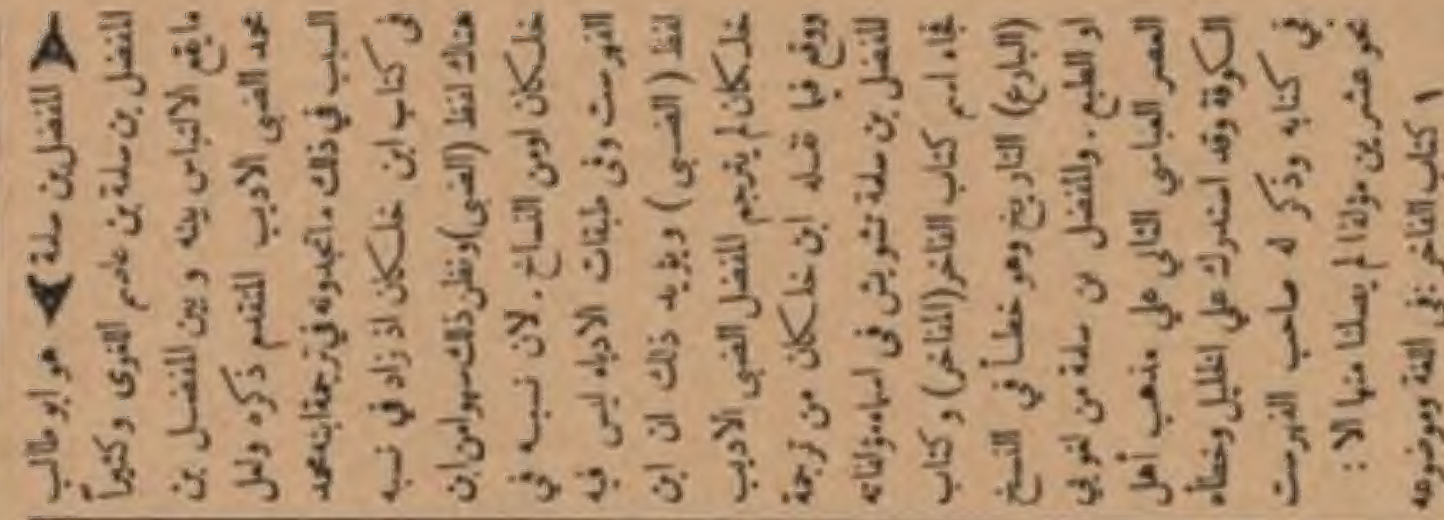 ﴿ المفضل بن سلمة ﴾ هو ابو طالب
المفضل بن سلمة بن عاصم اللغوى وكثيراً
مايقع الالتباس بينه وبين المفضل بن
محمد الضبى الاديب المتقدم ذكره ولعل
السبب في ذلك ماتجدونه في ترجمة ابنه محمد
فى كتاب ابن خلكان اذ زاد في نسبه
هناك لفظ (الضبى) ونظن ذلك سهوا من ابن
خلكان اومن النساخ . لان نسبه في
الفهرست وفى طبقات الادباء ليس فيه
لفظ (الضبى) ويؤيد ذلك ان ابن
خلكان لم يترجم المفضل الضبى الاديب
ووقع فيما نقله ابن خلكان من ترجمة
المفضل بن سلمة تشويش فى اسماء مؤلفاته
فجاء اسم كتاب الفاخر (المفاخر) وكتاب
(البارع) التاريخ وهو خطأ في النسخ
او الطبع . والمفضل بن سلمة من لغويي
العصر العباسي الثاني علي مذهب أهل
الكوفة وقد استدرك علي الخليل وخطأه
في كتابه وذكر له صاحب الفهرست
نحو عشرين مؤلفا لم يصلنا منها الا :
١ كتاب الفاخر : فى اللغة وموضوعه